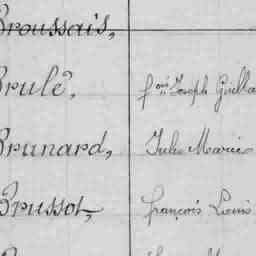 Broussais,
Brulé, fois Joseph Guilla
Brunard, Jules Marie
Brussot, françois Louis